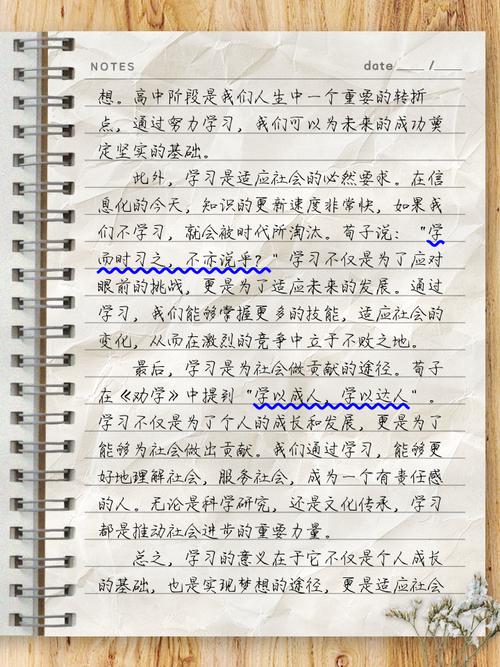 NOTES date ____ / ____
想。高中阶段是我们人生中一个重要的转折
点，通过努力学习，我们可以为未来的成功奠
定坚实的基础。
此外，学习是适应社会的必然要求。在信
息化的今天，知识的更新速度非常快，如果我
们不学习，就会被时代所淘汰。荀子说：“学
而时习之，不亦说乎？”学习不仅是为了应对
眼前的挑战，更是为了适应未来的发展。通过
学习，我们能够掌握更多的技能，适应社会的
变化，从而在激烈的竞争中立于不败之地。
最后，学习是为社会做贡献的途径。荀子
在《劝学》中提到“学以成人，学以达人”。
学习不仅是为了个人的成长和发展，更是为了
能够为社会做出贡献。我们通过学习，能够更
好地理解社会，服务社会，成为一个有责任感
的人。无论是科学研究，还是文化传承，学习
都是推动社会进步的重要力量。
总之，学习的意义在于它不仅是个人成长
的基础，也是实现梦想的途径，更是适应社会